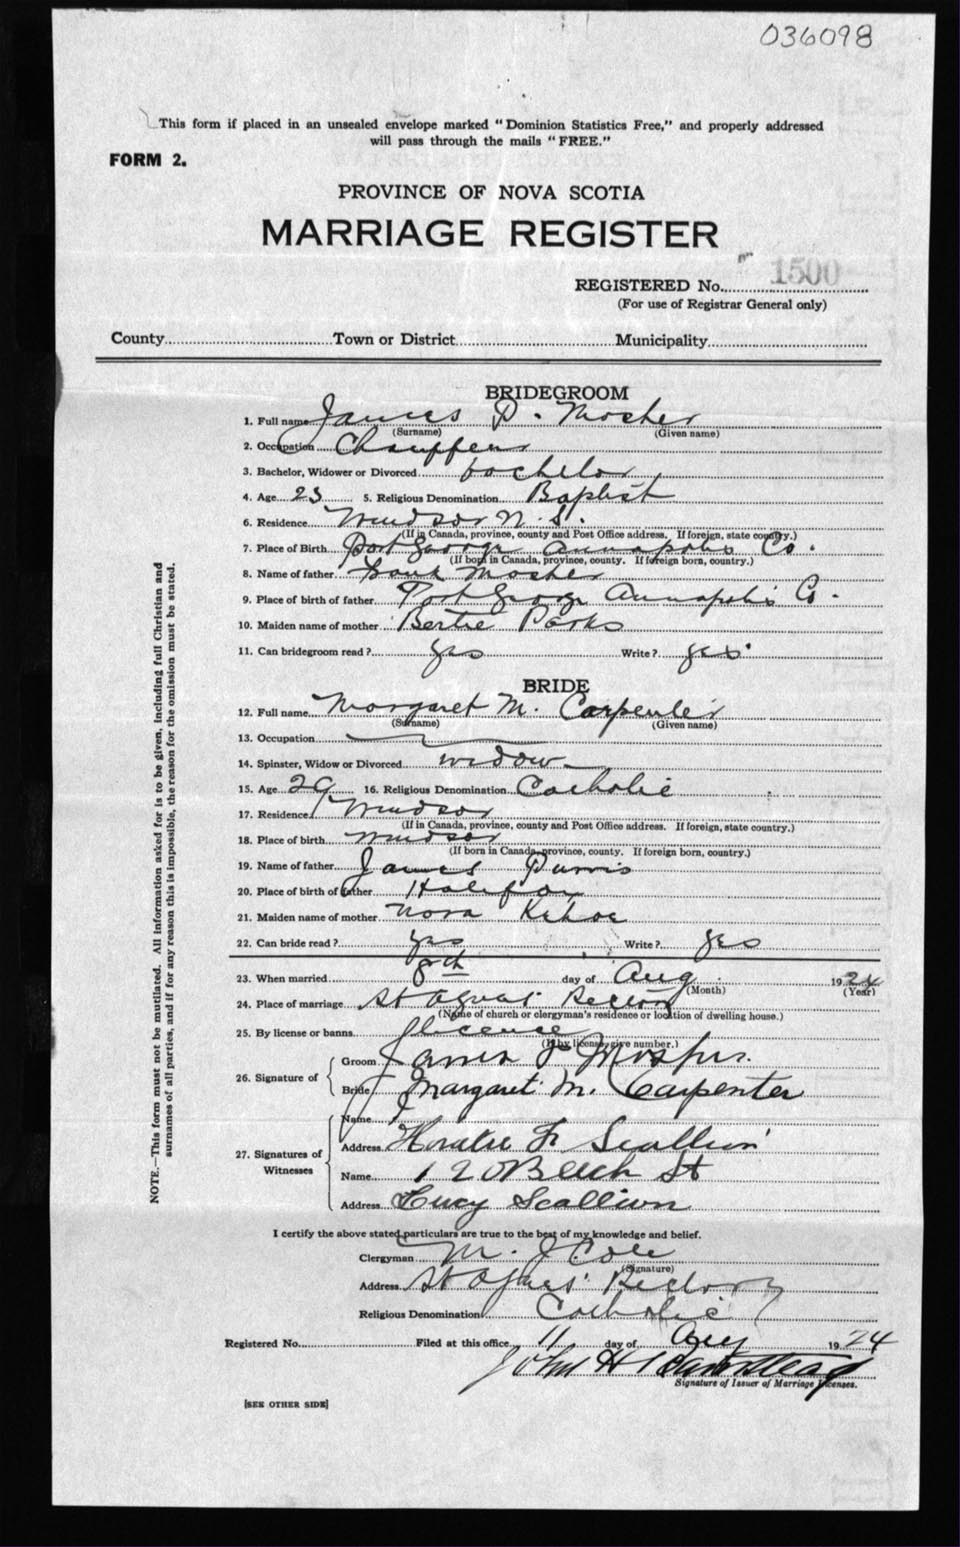 036098
This form if placed in an unsealed envelope marked "Dominion Statistics Free," and properly addressed
will pass through the mails "FREE."
FORM 2.
PROVINCE OF NOVA SCOTIA
MARRIAGE REGISTER
REGISTERED No. 1500
(For use of Registrar General only)
County Town or District Municipality
BRIDEGROOM
1. Full name James D. Mosher
(Surname) (Given name)
2. Occupation Chauffeur
3. Bachelor, Widower or Divorced bachelor
4. Age 23 5. Religious Denomination Baptist
6. Residence Windsor N.S.
(If in Canada, province, county and Post Office address. If foreign, state country.)
7. Place of Birth Port George Annapolis Co.
(If born in Canada, province, county. If foreign born, country.)
8. Name of father Frank Mosher
9. Place of birth of father Port George Annapolis Co.
10. Maiden name of mother Bertie Parks
11. Can bridegroom read? yes Write? yes
BRIDE
12. Full name Margaret M. Carpenter
(Surname) (Given name)
13. Occupation
14. Spinster, Widow or Divorced widow
15. Age 29 16. Religious Denomination Catholic
17. Residence Windsor
(If in Canada, province, county and Post Office address. If foreign, state country.)
18. Place of birth Windsor
(If born in Canada, province, county. If foreign born, country.)
19. Name of father James Purvis
20. Place of birth of father Halifax
21. Maiden name of mother Nora Kehoe
22. Can bride read? yes Write? yes
23. When married 8th day of Aug 1924
(Month) (Year)
24. Place of marriage St Agnes' Rectory
(Name of church or clergyman's residence or location of dwelling house.)
25. By license or banns license
(If by license, give number.)
26. Signature of Groom James Mosher
Bride Margaret M. Carpenter
27. Signatures of Witnesses
Name
Address Horatio F. Scallion
Name 120 Beech St
Address Lucy Scallion
I certify the above stated particulars are true to the best of my knowledge and belief.
Clergyman M. J. Cole
(Signature)
Address St Agnes' Rectory
Religious Denomination Catholic
Registered No. Filed at this office 11 day of Aug 1924
John H
Signature of Issuer of Marriage Licenses.
[SEE OTHER SIDE]
NOTE.—This form must not be mutilated. All information asked for is to be given, including full Christian and
surnames of all parties, and if for any reason this is impossible, the reason for the omission must be stated.